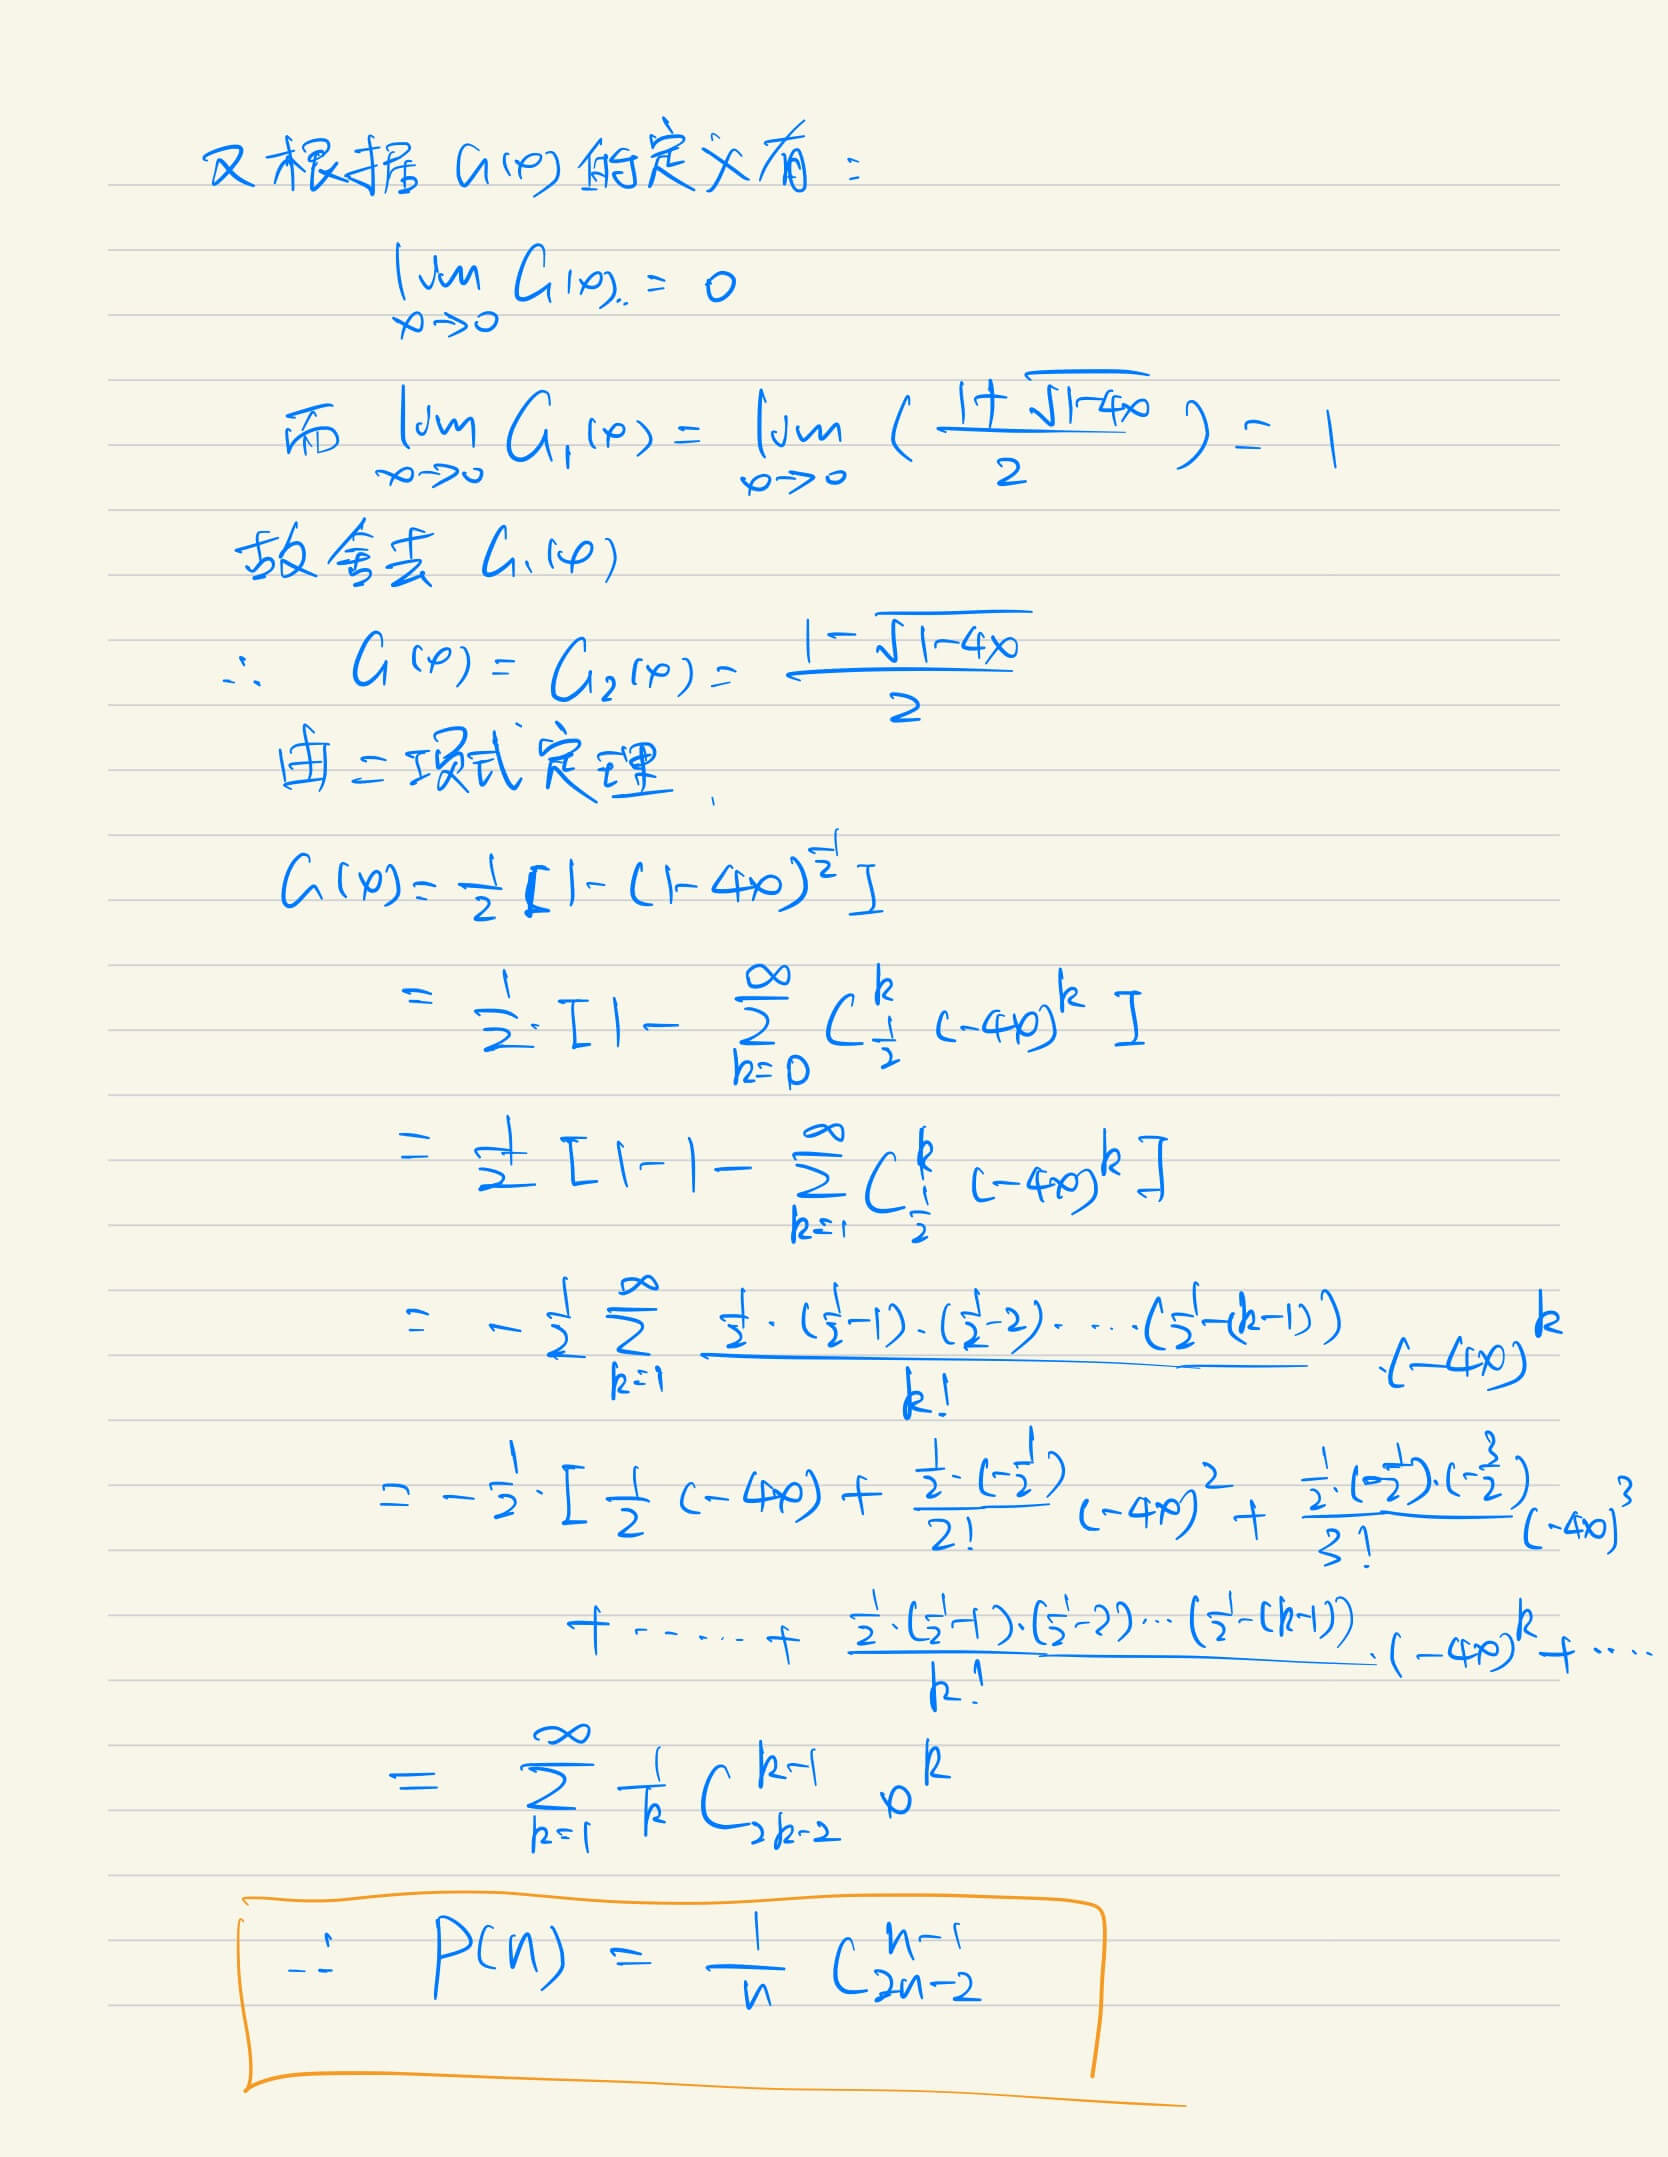 又根据 G(x) 的定义有：
lim_{x→0} G(x) = 0
而 lim_{x→0} G₁(x) = lim_{x→0} ( (1+√(1-4x))/2 ) = 1
故舍去 G₁(x)
∴ G(x) = G₂(x) = (1-√(1-4x))/2
由二项式定理.
G(x) = 1/2 [1-(1-4x)^{1/2}]
= 1/2 · [1 - ∑_{k=0}^{∞} C_{1/2}^{k} (-4x)^k]
= 1/2 [1-1-∑_{k=1}^{∞} C_{1/2}^{k} (-4x)^k]
= -1/2 ∑_{k=1}^{∞} (1/2·(1/2-1)·(1/2-2)·…·(1/2-(k-1)))/k! ·(-4x)^k
= -1/2·[1/2 (-4x) + (1/2·(-1/2))/2! (-4x)^2 + (1/2·(-1/2)·(-3/2))/3! (-4x)^3
+ …… + (1/2·(1/2-1)·(1/2-2)…(1/2-(k-1)))/k! ·(-4x)^k + ……
= ∑_{k=1}^{∞} 1/k C_{2k-2}^{k-1} x^k
∴ P(n) = 1/n C_{2n-2}^{n-1}